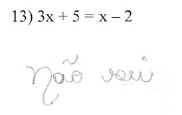 13) 3x + 5 = x – 2
Não sei